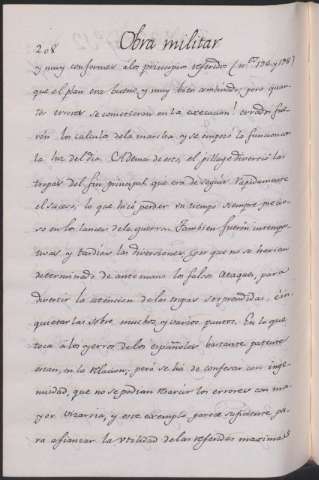 208 Obra militar
y muy conformes a los principios referidos (nos. 196. y 198)
que el plan era bueno, y muy bien combinado; pero quan-
tos errores se cometieron en la execucion! errados fue-
rón los calculos de la marcha, y se empezó la funcion con
la luz del dia. Ademas de esto, el pillage divertió las
tropas del fin principal, que era de seguir rapidamente
el suceso, lo que hizó perder un tiempo siempre precio-
so en los lances de la guerra. Tambien fuerón intempes-
tivas, y tardias las diversiones, por que no se havian
determinado de antemano los falsos ataques, para
divertir la atencion de las tropas sorprendidas, é in-
quietarlas sobre muchos, y varios puntos. En lo que
toca a los yerros de los españoles bastante patentes
estan, en la Relacion, peró se há de confesar con inge-
nuidad, que no se podian resarcir los errores con ma-
yor vizarria, y este exemplo parece suficiente pa-
ra afianzar la utilidad de las referidas maximas